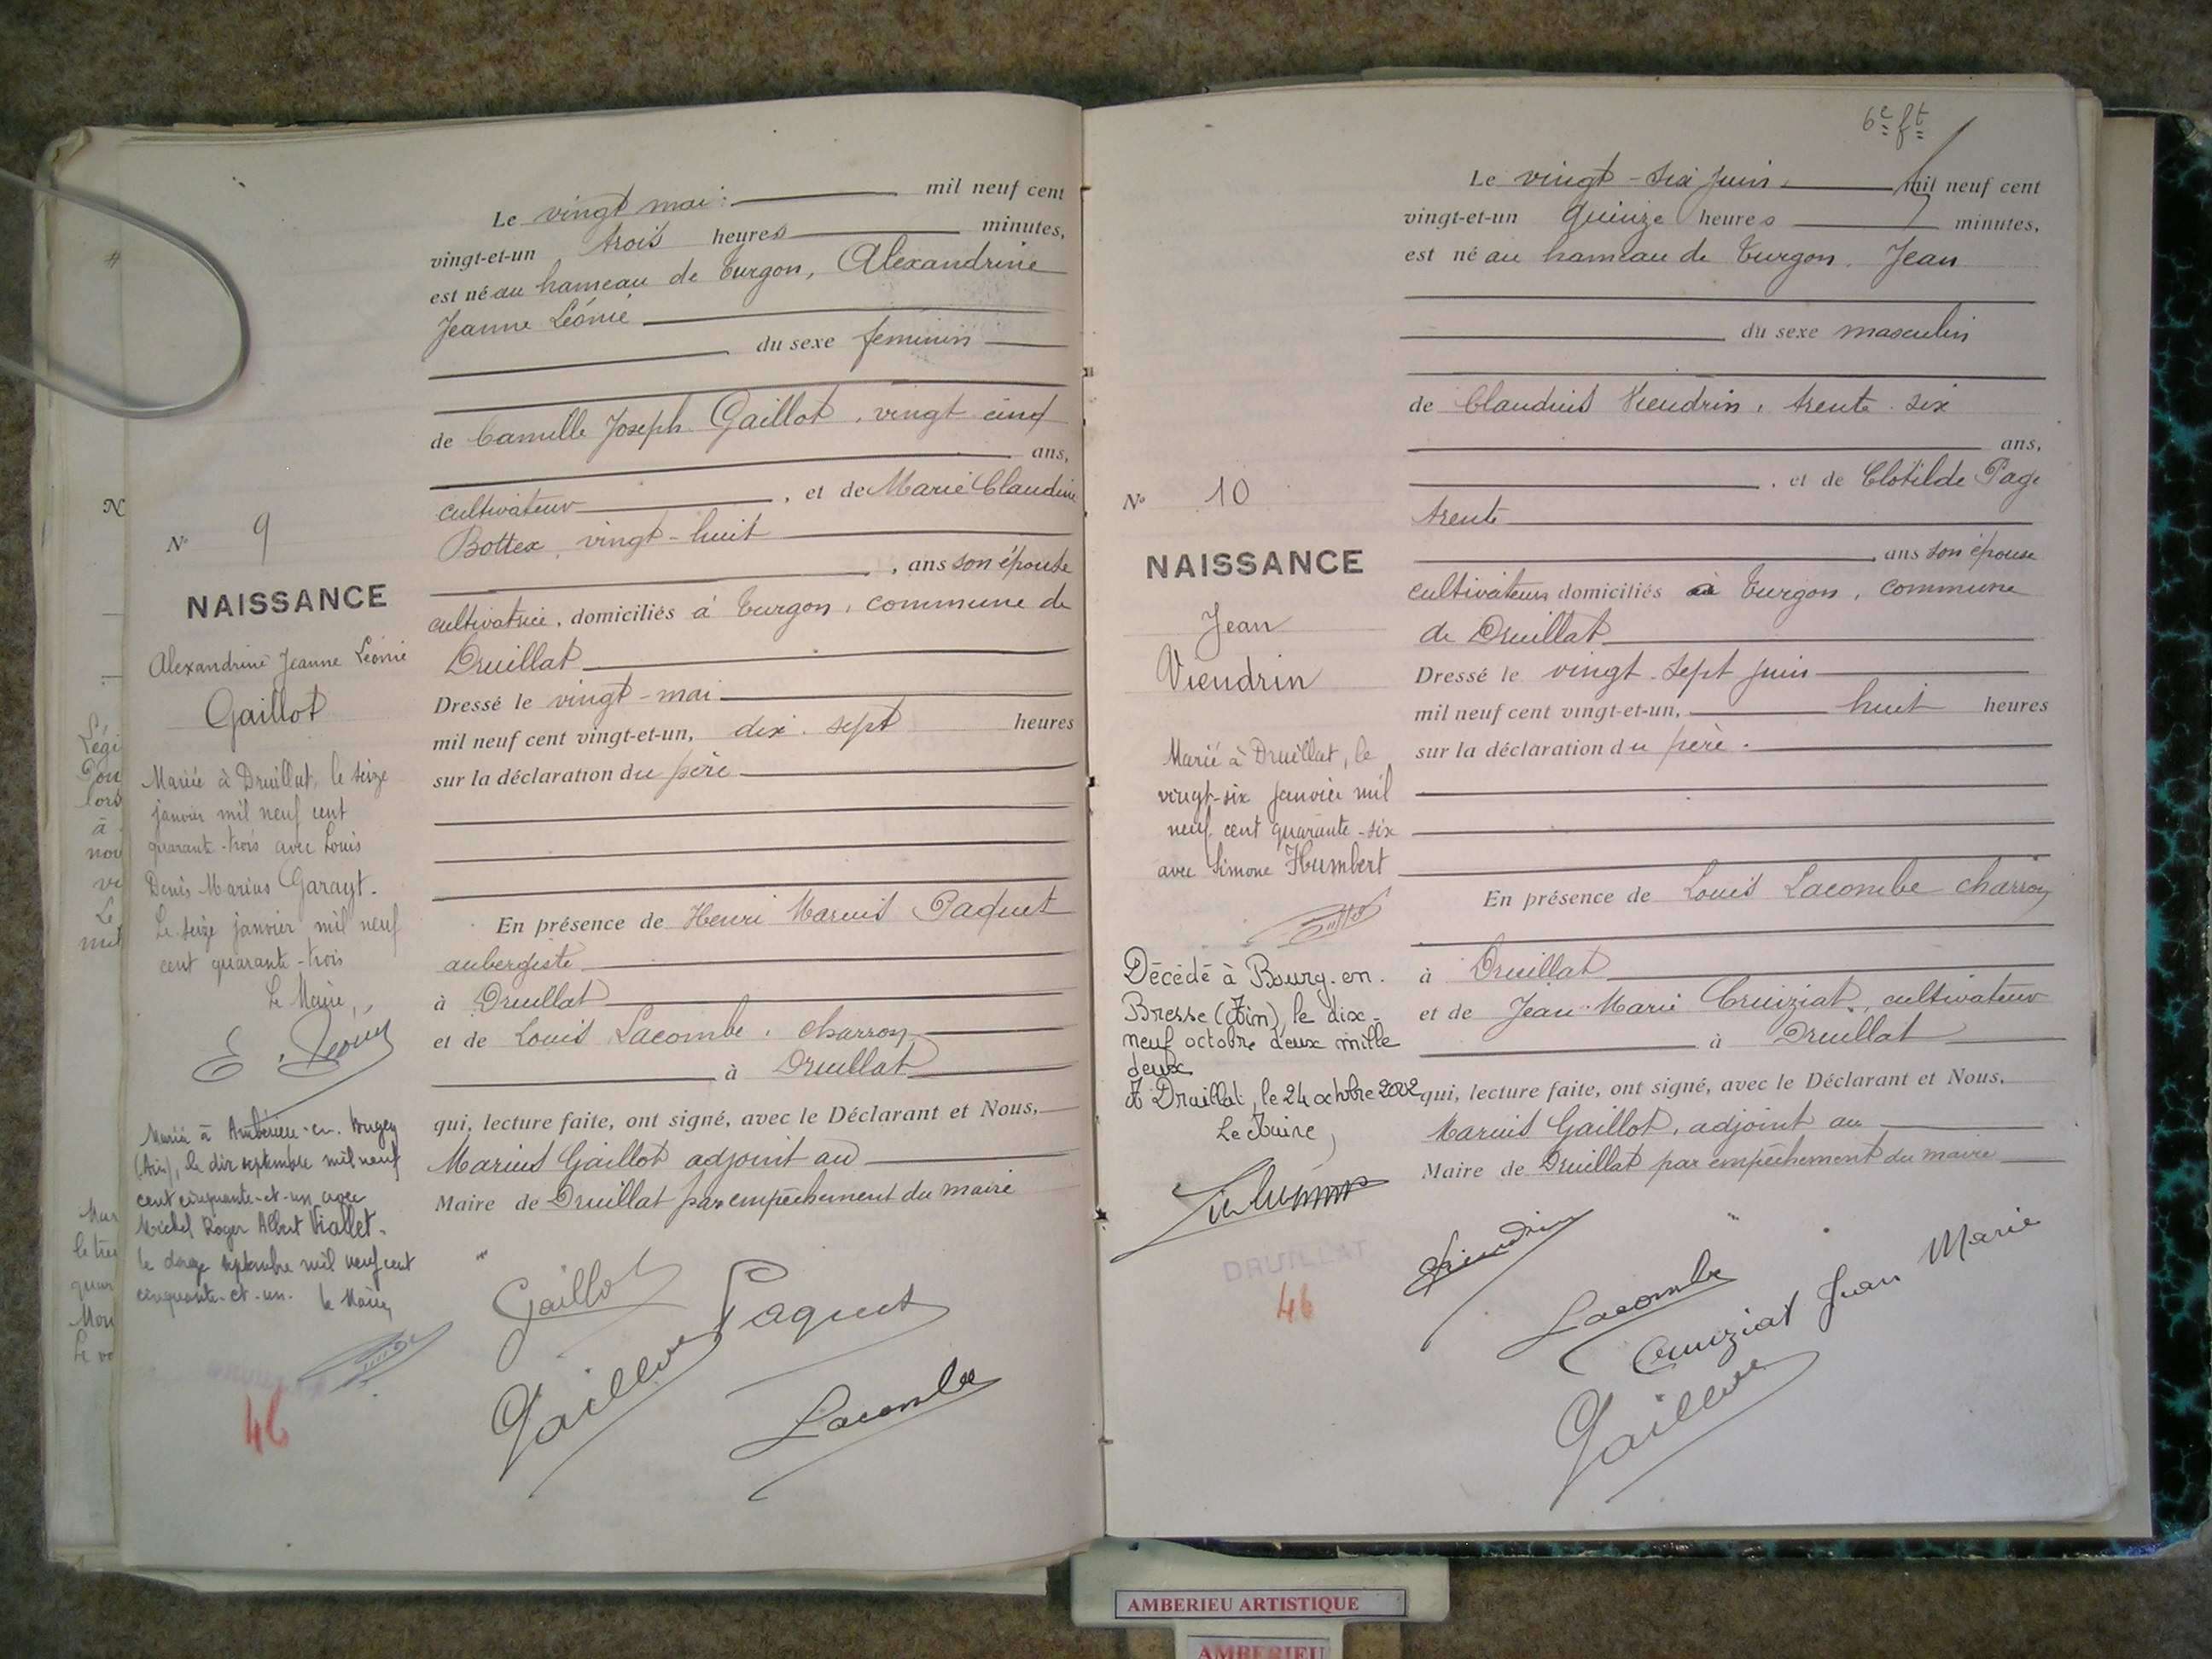 N° 9
NAISSANCE
Alexandrine Jeanne Léonie
Gaillot
Mariée à Druillat, le seize
janvier mil neuf cent
quarante-trois avec Louis
Denis Marius Garayt.
Le seize janvier mil neuf
cent quarante-trois
Le Maire,
Mariée à Ambérieu-en-Bugey
(Ain), le dix septembre mil neuf
cent cinquante-et-un avec
Michel Roger Albert Viallet.
le douze septembre mil neuf cent
cinquante-et-un. le Maire
DRUILLAT
46
Le vingt mai: mil neuf cent
vingt-et-un trois heures minutes,
est né au hameau de Turgon, Alexandrine
Jeanne Léonie
du sexe feminin
de Camille Joseph Gaillot, vingt cinq
ans,
cultivateur , et de Marie Claudine
Bottex, vingt-huit
, ans son épouse
cultivatrice, domiciliés à Turgon, commune de
Druillat
Dressé le vingt-mai
mil neuf cent vingt-et-un, dix-sept heures
sur la déclaration du père
En présence de Henri Marius Paquet
aubergiste
à Druillat
et de Louis Lacombe, charron
à Druillat
qui, lecture faite, ont signé, avec le Déclarant et Nous,
Marius Gaillot adjoint au
Maire de Druillat par empêchement du maire
Gaillot
Paquet
Gaillot
Lacombe
6e ft
N° 10
NAISSANCE
Jean
Viendrin
Marié à Druillat, le
vingt-six janvier mil
neuf cent quarante-six
avec Simone Humbert
Décédé à Bourg-en-
Bresse (Ain), le dix-
neuf octobre deux mille
deux.
A Druillat, le 24 octobre 2002
Le Maire,
DRUILLAT
46
Le vingt-six juin mil neuf cent
vingt-et-un quinze heures minutes,
est né au hameau de Turgon, Jean
du sexe masculin
de Claudius Viendrin, trente-six
ans,
, et de Clotilde Page
trente
ans son épouse
cultivateurs domiciliés à Turgon, commune
de Druillat
Dressé le vingt-sept juin
mil neuf cent vingt-et-un, huit heures
sur la déclaration du père.
En présence de Louis Lacombe charron
à Druillat
et de Jean-Marie Cruiziat, cultivateur
à Druillat
qui, lecture faite, ont signé, avec le Déclarant et Nous,
Marius Gaillot, adjoint au
Maire de Druillat par empêchement du maire
Viendrin
Lacombe
Cruiziat Jean Marie
Gaillot
AMBERIEU ARTISTIQUE
AMBERIEU